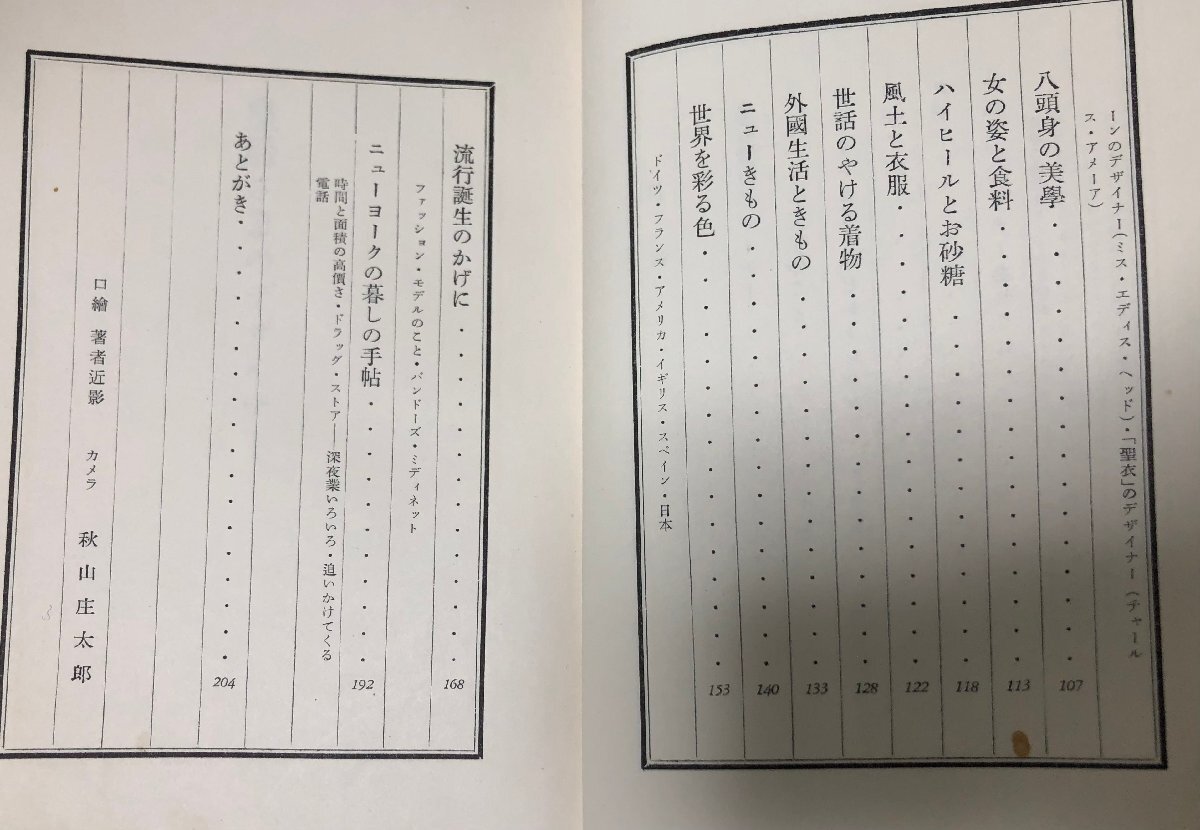 ーンのデザイナー(ミス・エディス・ヘッド)・「聖衣」のデザイナー(チャール
ス・アメーア)
八頭身の美學・・・・・・・・・107
女の姿と食料・・・・・・・・・113
ハイヒールとお砂糖・・・・・・・118
風土と衣服・・・・・・・・・・122
世話のやける着物・・・・・・・・128
外國生活ときもの・・・・・・・・133
ニューきもの・・・・・・・・・140
世界を彩る色・・・・・・・・・153
ドイツ・フランス・アメリカ・イギリス・スペイン・日本
流行誕生のかげに・・・・・・・・168
ファッション・モデルのこと・バンドーズ・ミディネット
ニューヨークの暮しの手帖・・・・・・192
時間と面積の高價さ・ドラッグ・ストア——深夜業いろいろ・追いかけてくる
電話
あとがき・・・・・・・・・・204
口繪 著者近影 カメラ 秋山庄太郎